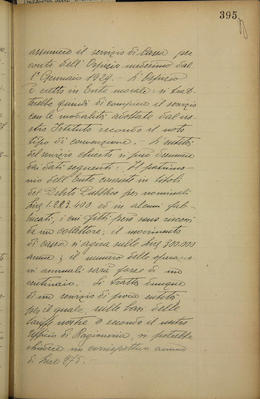 395
assumere il servizio di Cassa per
conto dell'Ospizio medesimo dal
1° Gennaio 1929. - L'Ospizio
è eretto in Ente morale e si trat-
terebbe quindi di compiere il servizio
con le modalità adottate dal no-
stro Istituto secondo il noto
tipo di convenzione. - L'entità
del servizio chiesto si può desumere
dai dati seguenti. Il patrimo-
nio dell'Ente consiste in titoli
del Debito Pubblico per nominali
Lire 1.283.400 ed in alcuni fab-
bricati, i cui fitti però sono riscossi
da collettore; il movimento
di cassa si aggira sulle Lire 300.000
annue; il numero delle operazio-
ni annuali sarà forse di un
centinaio. Si tratta dunque
di un servizio di poca entità
per il quale, sulla base delle
tariffe nostre e secondo il nostro
Ufficio di Ragioneria, si potrebbe
chiedere un corrispettivo annuo
di Lire 975.